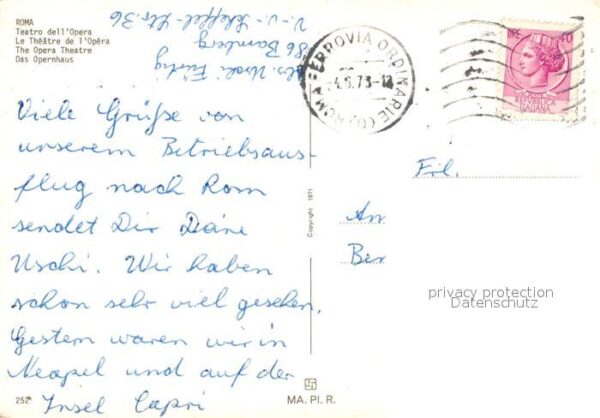 ROMA
Teatro dell'Opera
Le Théâtre de l'Opéra
The Opera Theatre
Das Opernhaus
Uschi
86 Bamberg
V.-v.-Scheffel-Str. 36
ROMA FERROVIA ORDINARIE
4.6.73-12
LIRE 60
REPVBBLICA
ITALIANA
Viele Grüße von
unserem Betriebsaus-
flug nach Rom
sendet Dir Deine
Uschi. Wir haben
schon sehr viel gesehen.
Gestern waren wir in
Neapel und auf der
Insel Capri
Frl.
An
Ber
Copyright 1971
privacy protection
Datenschutz
252
MA. PI. R.